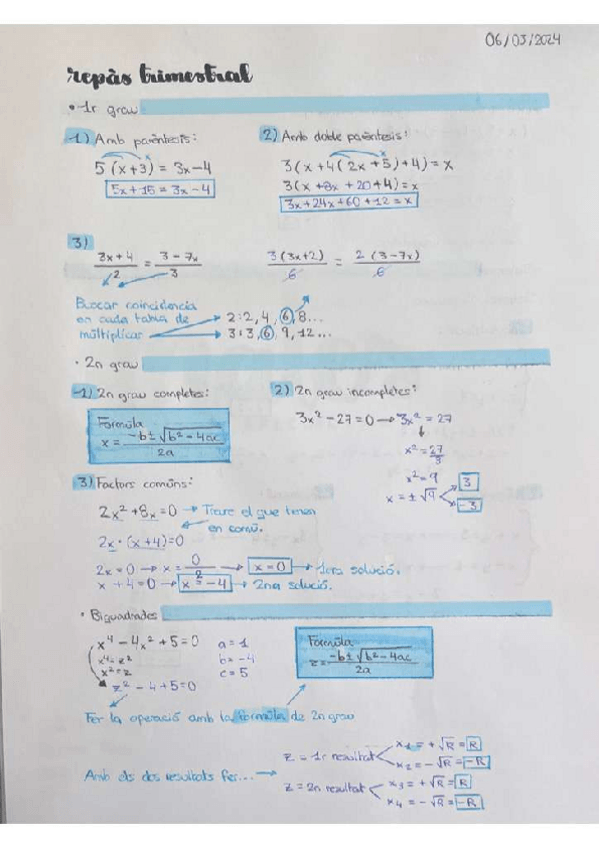 06/03/2024
repàs trimestral
• 1r grau
1) Amb parèntesis:
5(x+3) = 3x-4
5x+15 = 3x-4
2) Amb doble parèntesis:
3(x+4(2x+5)+4) = x
3(x+8x+20+4) = x
3x+24x+60+12 = x
3)
3x+4/2 = 3-7x/3
3(3x+2)/6 = 2(3-7x)/6
Buscar coincidencia
en cada tabla de
múltiplicar
2:2,4,6,8...
3:3,6,9,12...
• 2n grau
1) 2n grau completes:
Formula
x = -b±√b²-4ac/2a
2) 2n grau incompletes:
3x²-27=0 → 3x² = 27
x² = 27/3
x² = 9
x = ±√9
3
-3
3) Factors comúns:
2x²+8x=0 → Treure el que tenen
en comú.
2x·(x+4)=0
2x=0 → x = 0/2 → x=0 → 1era solució.
x+4=0 → x=-4 → 2na solució.
• Biquadrades
x⁴-4x²+5=0
x⁴=z²
x²=z
z²-4+5=0
a=1
b=-4
c=5
Formula
z = -b±√b²-4ac/2a
Fer la operació amb la formula de 2n grau
Amb els dos resultats fer... →
z = 1r resultat
x₁ = +√R = R
x₂ = -√R = -R
z = 2n resultat
x₃ = +√R = R
x₄ = -√R = -R